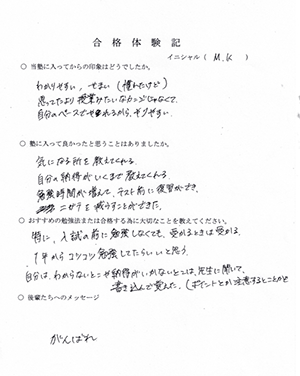 合格体験記
イニシャル( M.K )
○ 当塾に入ってからの印象はどうでしたか。
わかりやすい、せまい(慣れたけど)
思ってたより授業みたいなカンジじゃなくて、
自分のペースでやれるから、やりやすい
○ 塾に入って良かったと思うことはありましたか。
気になる所を教えてくれる。
自分の納得がいくまで教えてくれる。
勉強時間が増えて、テスト前に復習ができ、
ニガテを減らすことができた。
○ おすすめの勉強法または合格する為に大切なことを教えてください。
特に、入試の前に勉強しなくても、受かるときは受かる。
1年からコツコツ勉強してたらいいと思う。
自分は、わからないとこや納得がいかないとこは、先生に聞いて、
書き込んで覚えた。(ポイントとか注意することとかを
○ 後輩たちへのメッセージ
がんばれ